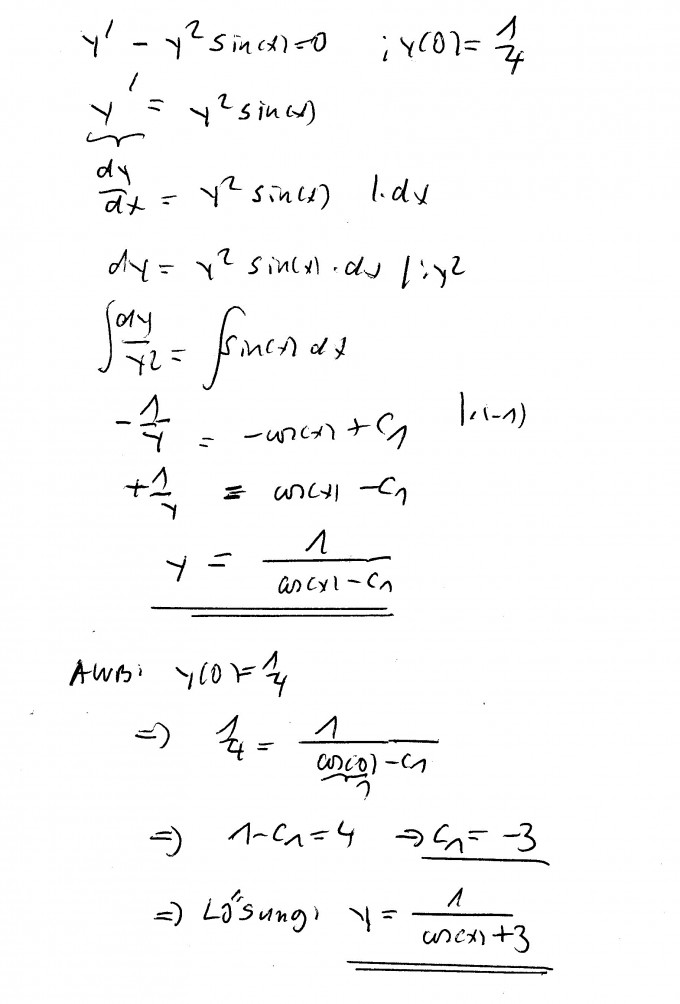 y' - y² sin(x) = 0 ; y(0) = 1/4
y' = y² sin(x)
dy/dx = y² sin(x) |·dx
dy = y² sin(x) · dx |:y²
∫ dy/y² = ∫ sin(x) dx
- 1/y = -cos(x) + C₁ |·(-1)
+ 1/y = cos(x) - C₁
y = 1/(cos(x) - C₁)
AWB: y(0) = 1/4
⇒ 1/4 = 1/(cos(0) - C₁)
1
⇒ 1 - C₁ = 4 ⇒ C₁ = -3
⇒ Lösung: y = 1/(cos(x) + 3)